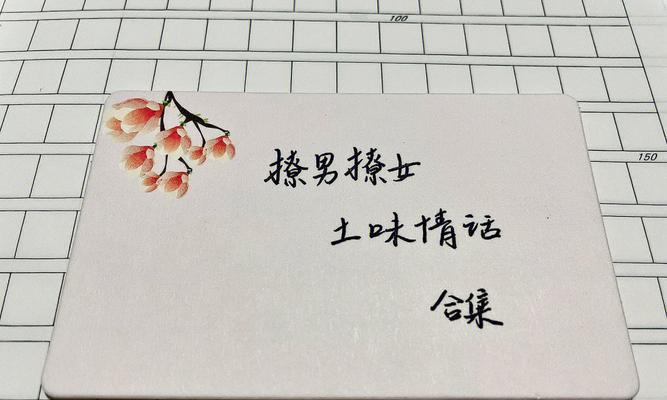 100
150
撩男撩女
土味情话
合集